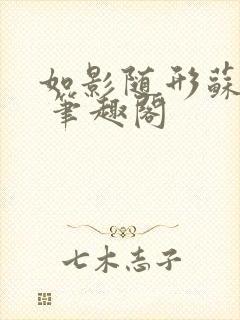 如影随形蘇
筆趣閣
七木志子